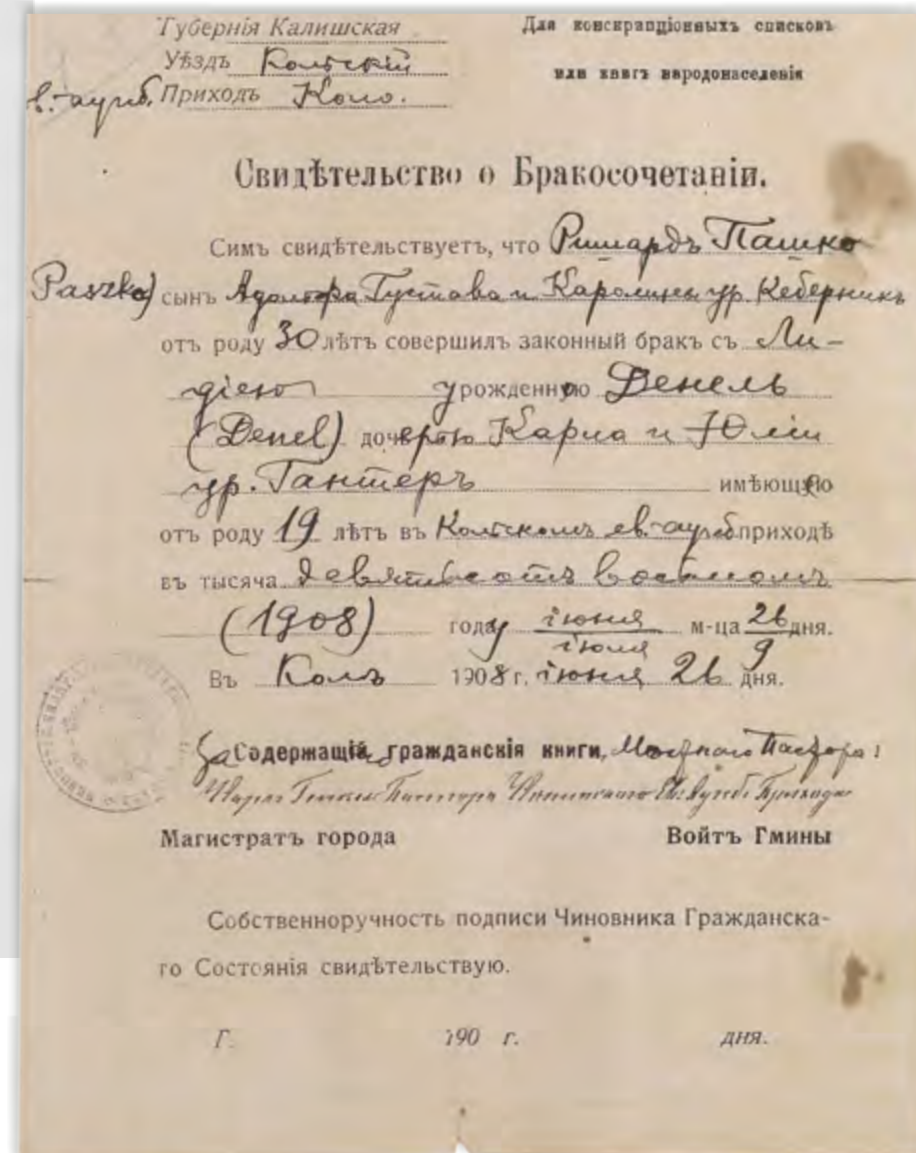 Губернія Калишская
Уѣздъ Кольскій
Е.-аугсб. Приходъ Коло.
Для конскрипціонныхъ списковъ
или книгъ народонаселенія
Свидѣтельство о Бракосочетаніи.
Симъ свидѣтельствуетъ, что Ришардъ Пашко
Paszko) сынъ Адольфа Густава и Каролины ур. Кеберникъ
отъ роду 30 лѣтъ совершилъ законный бракъ съ Ли-
діею урожденною Денель
(Denel) дочерью Карла и Юліи
ур. Гантеръ имѣющую
отъ роду 19 лѣтъ въ Кольскомъ ев.-аугсб приходѣ
въ тысяча девятьсотъ восьмомъ
(1908) году іюня/іюля м-ца 26/9 дня.
Въ Колѣ 1908 г. іюня 26 дня.
За Содержащій гражданскія книги, Мѣстнаго Пастора:
Пасторъ Ев. Аугсб. Прихода
Магистратъ города Войтъ Гмины
Собственноручность подписи Чиновника Гражданска-
го Состоянія свидѣтельствую.
Г. 190 г. дня.